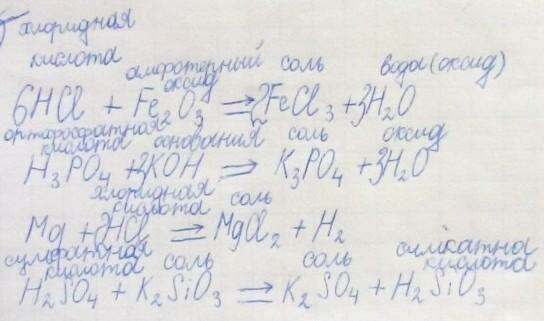 хлоридная
кислота амфотерный оксид соль вода (оксид)
6HCl + Fe₂O₃ ⇒ 2FeCl₃ + 3H₂O
ортофосфатная кислота основания соль оксид
H₃PO₄ + 3KOH ⇒ K₃PO₄ + 3H₂O
хлоридная кислота соль
Mg + 2HCl ⇒ MgCl₂ + H₂
сульфатная кислота соль соль силікатна кислота
H₂SO₄ + K₂SiO₃ ⇒ K₂SO₄ + H₂SiO₃